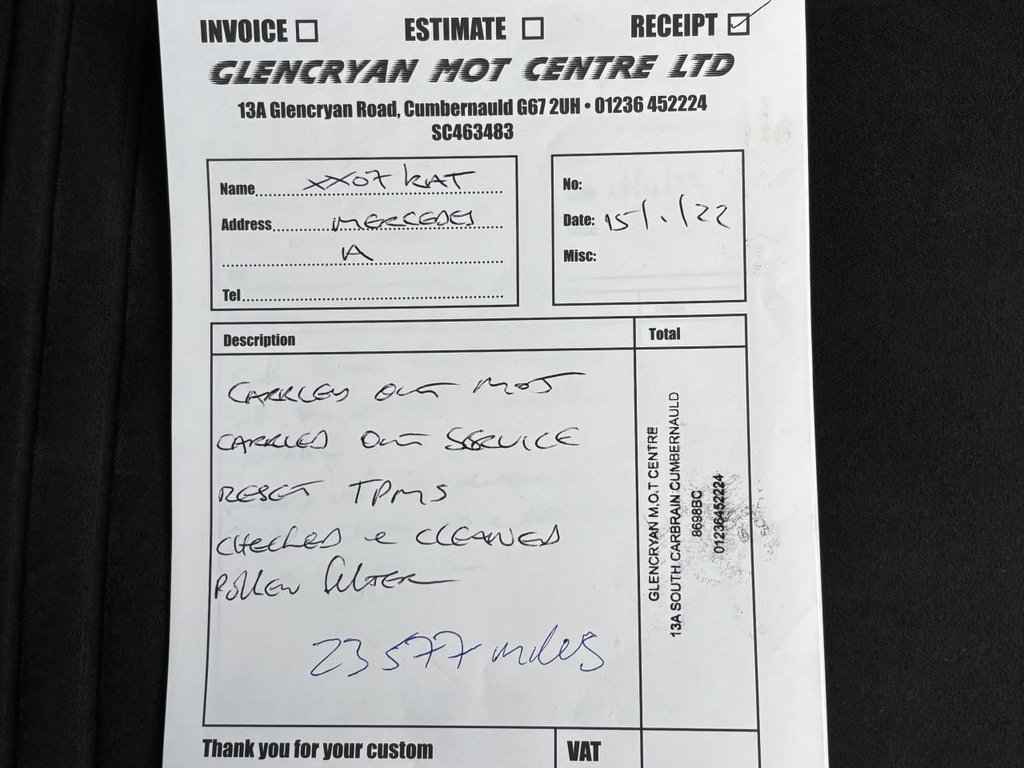 INVOICE ESTIMATE RECEIPT
GLENCRYAN MOT CENTRE LTD
13A Glencryan Road, Cumbernauld G67 2UH • 01236 452224
SC463483
Name XX07 KAT
Address MERCEDES
A
Tel
No:
Date: 15/./22
Misc:
Description Total
CARRIED OUT MOT
CARRIED OUT SERVICE
RESET TPMS
CHECKED & CLEANED
POLLEN FILTER
23577 miles
GLENCRYAN M.O.T CENTRE
13A SOUTH CARBRAIN CUMBERNAULD
8698BC
01236452224
Thank you for your custom VAT